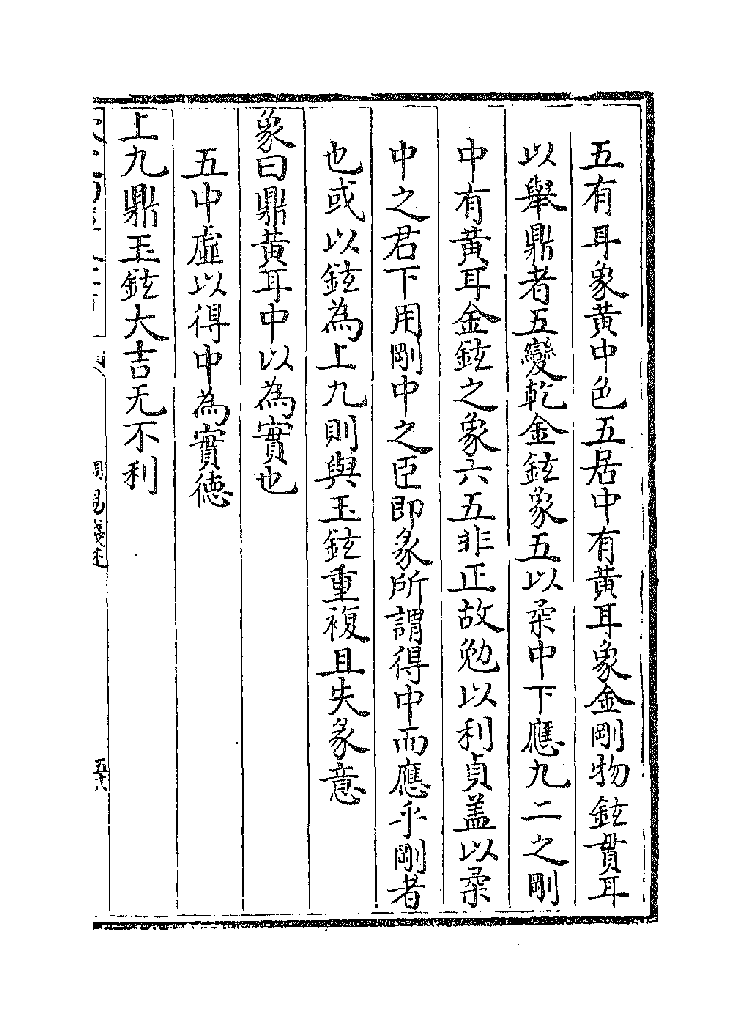 五有耳象黃中色五居中有黃耳象金剛物鉉貫耳
以舉鼎者五變乾金鉉象五以柔中下應九二之剛
中有黃耳金鉉之象六五非正故勉以利貞蓋以柔
中之君下用剛中之臣即彖所謂得中而應乎剛者
也或以鉉為上九則與玉鉉重複且失彖意
象曰鼎黃耳中以為實也
五中虛以得中為實德
上九鼎玉鉉大吉无不利
周易淺述